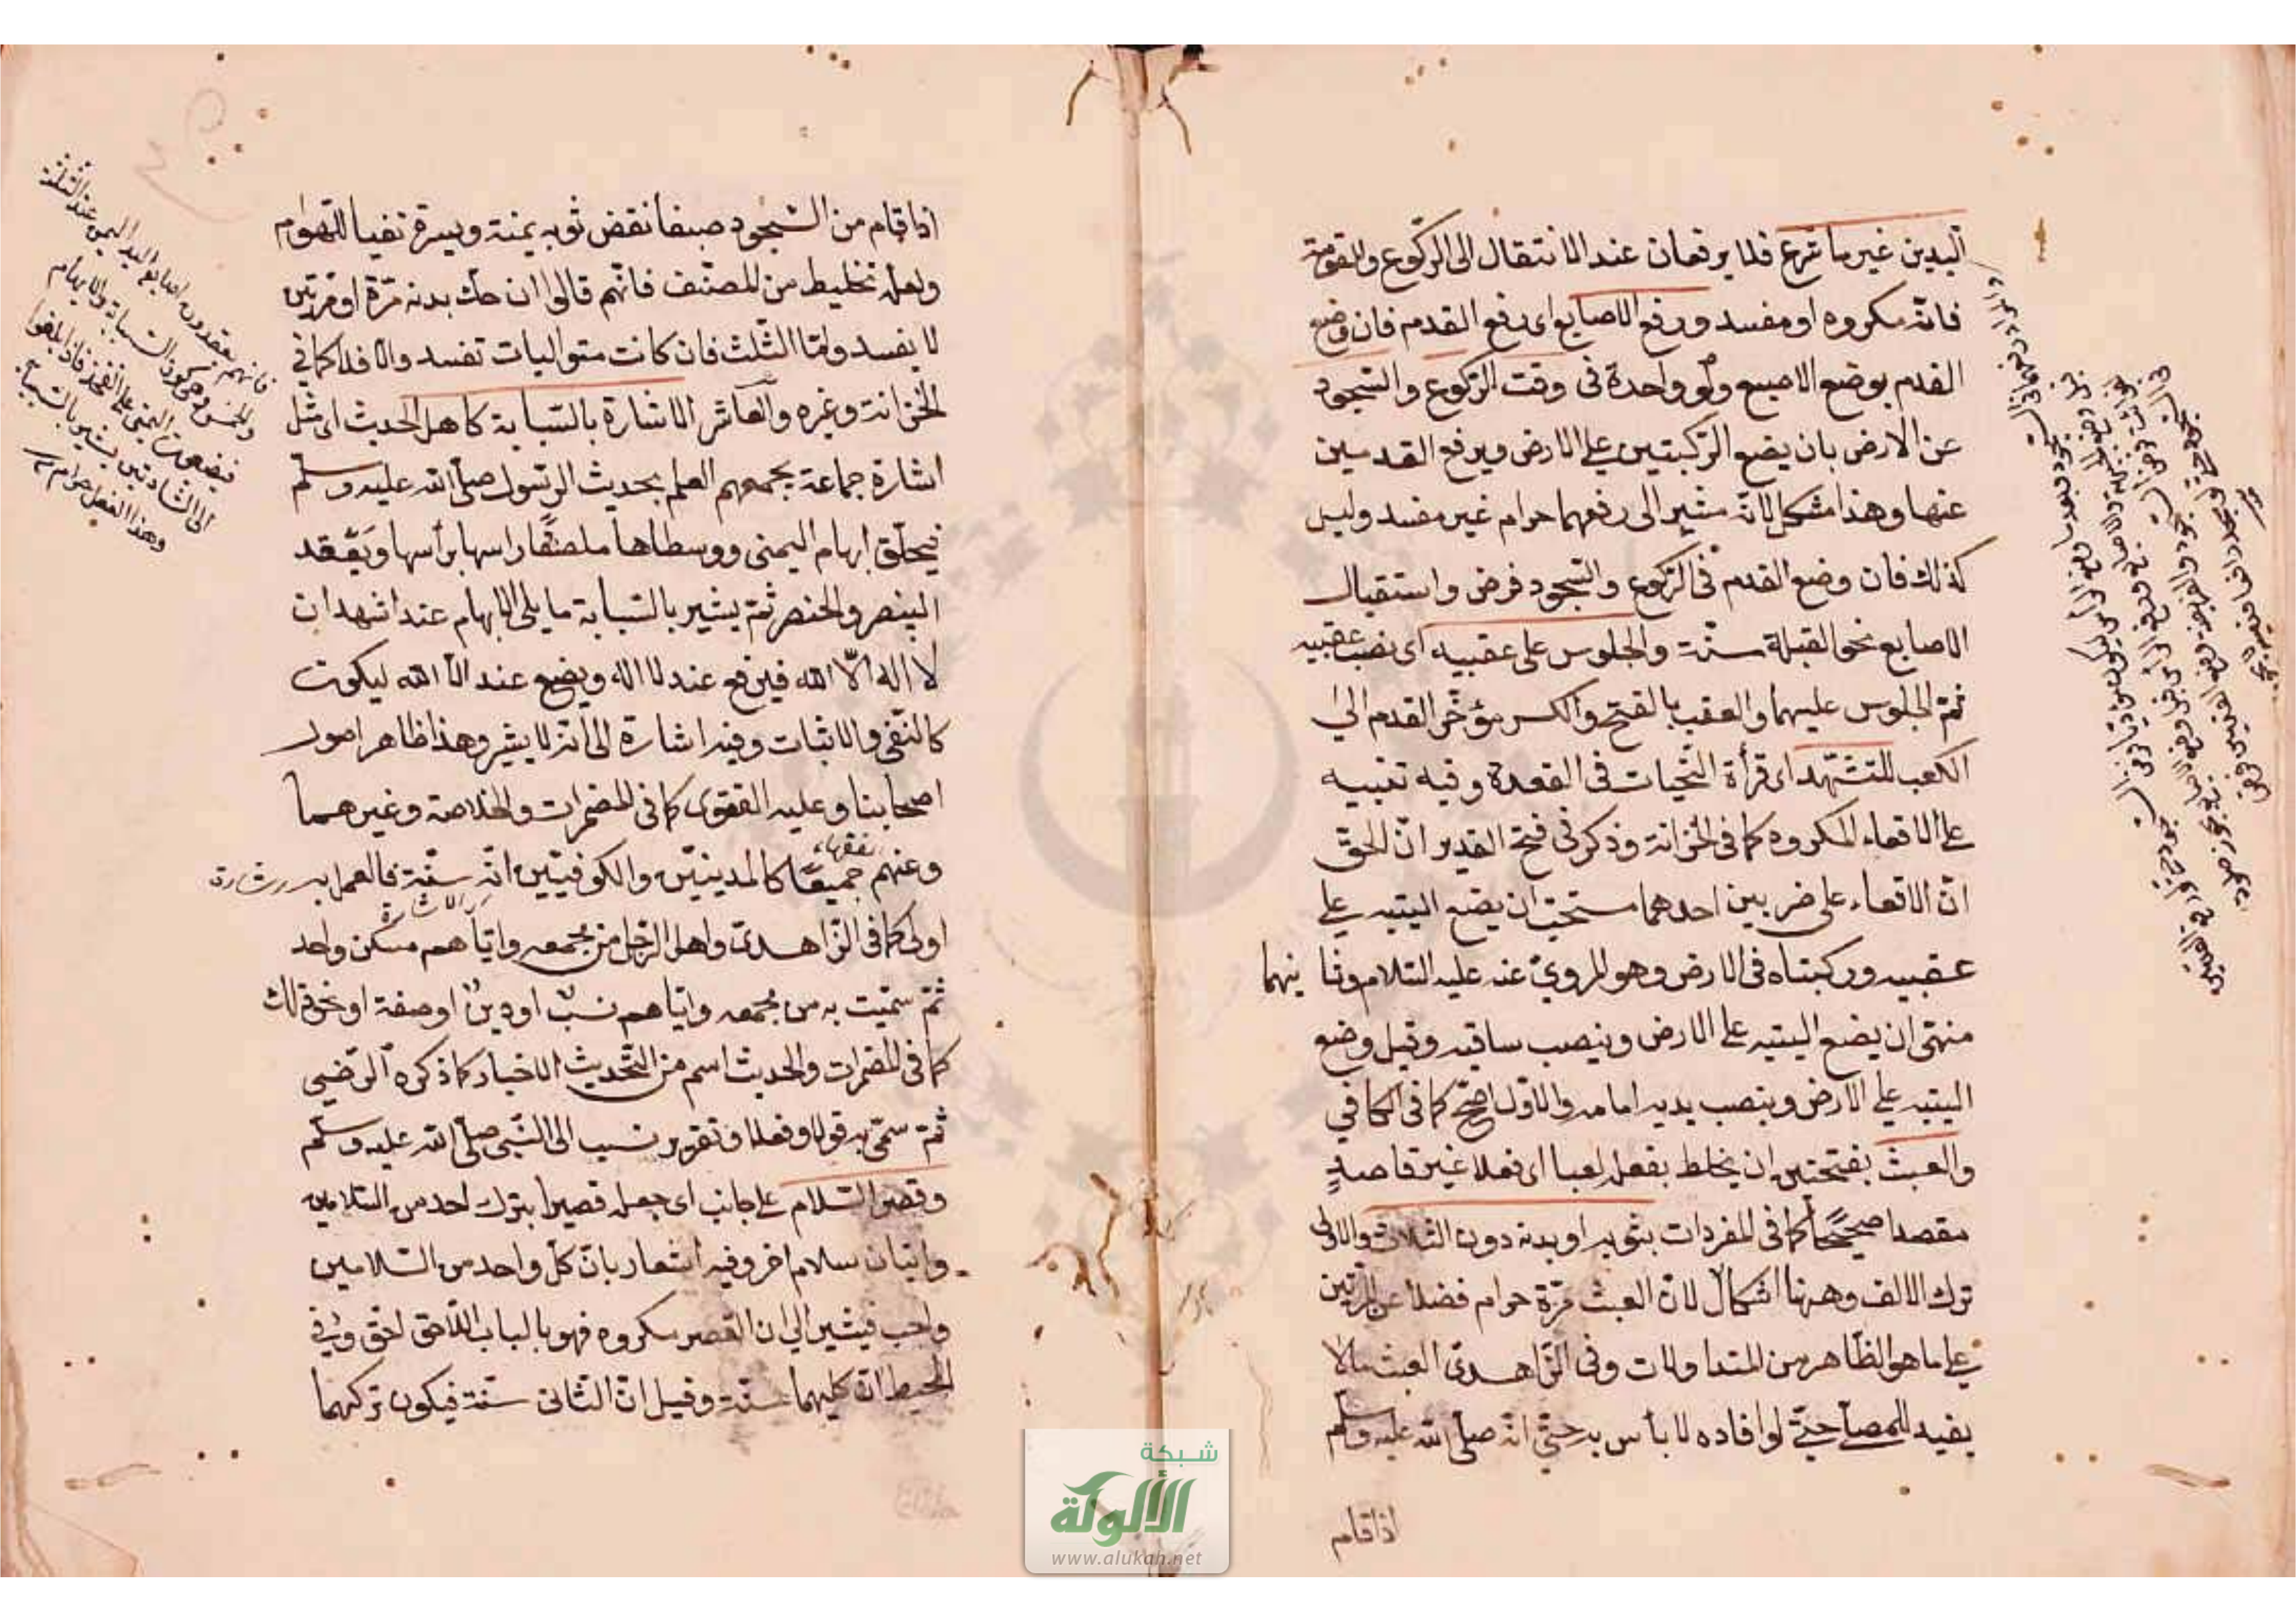 اليدين غير ما شرع فلا يرفعان عند الانتقال الى الركوع والقومة
فانه مكروه او مفسد ورفع الاصابع اى رفع القدم فان وضع
القدم بوضع الاصبع ولو واحدة فى وقت الركوع والسجود
عن الارض بان يضع الركبتين على الارض ويرفع القدمين
عنها وهذا مشكل لانه مشير الى رفعهما حرام غير مفسد وليس
كذلك فان وضع القدم فى الركوع والسجود فرض واستقبال
الاصابع نحو القبلة سنة والجلوس على عقبيه اى نصب عقبيه
ثم الجلوس عليهما والعقب بالفتح والكسر مؤخر القدم الى
الكعب للتشهد اى قرأة التحيات فى القعدة وفيه تنبيه
على الاقعاء المكروه كما فى الخزانة وذكر فى فتح القدير ان الحق
ان الاقعاء على ضربين احدهما مستحب ان يضع اليتيه على
عقبيه وركبتاه فى الارض وهو المروى عنه عليه السلام وثانيهما
منهى ان يضع اليتيه على الارض وينصب ساقيه وقيل وضع
اليتيه على الارض وينصب يديه امامه والاول اصح كما فى الكافي
والعبث بفتحتين ان يخلط بفعله لعبا اى فعلا غير قاصد
مقصدا صحيحا كما فى المفردات بثوبه او بدنه دون الثلاث والاولى
ترك الالف وههنا اشكال لان العبث مرة حرام فضلا عن المرتين
على ما هو الظاهر من المتداولات وفى الزاهدى العبث ما لا
يفيد للمصلى حتى لو افاده لا بأس به حتى انه صلى الله عليه وسلم
اذا قام
اذا قام من السجود صيفا نفض ثوبه يمنة ويسرة نفيا للهوام
ولعله تخليط من المصنف فانهم قالوا ان حك بدنه مرة او مرتين
لا يفسد واما الثلث فان كانت متواليات تفسد والا فلا كما في
الخزانة وغيره والعاشر الاشارة بالسبابة كاهل الحديث اى مثل
اشارة جماعة يجمعهم العلم بحديث الرسول صلى الله عليه وسلم
فيحلق ابهام اليمنى ووسطاها ملصقا راسها برأسها ويعقد
البنصر والخنصر ثم يشير بالسبابة ما يلى الابهام عند اشهد ان
لا اله الا الله فيرفع عند لا اله ويضع عند الا الله ليكون
كالنفى والاثبات وفيه اشارة الى انه لا يشير وهذا ظاهر اصول
اصحابنا وعليه الفتوى كما فى المضمرات والخلاصة وغيرهما
وعنهم جميعا كالمدينين والكوفيين انه سنة فالعمل به
فقهاء
اولى كما فى الزاهدى واهل الرجل من يجمعه واياهم مسكن واحد
ثم سميت به من يجمعه واياهم نسب او دين او صفة او نحو ذلك
كما فى المضمرات والحديث اسم من التحديث الاخبار كما ذكره الرضي
ثم سمى به قول او فعل او تقرير نسب الى النبى صلى الله عليه وسلم
وقصر السلام على جانب اى جعله قصيرا بترك احد من السلامين
واتيان سلام اخر وفيه اشعار بان كل واحد من السلامين
واجب فيشير الى ان القصر مكروه فهو بالباب اللاحق احق وفي
المحيط ان كليهما سنة وقيل ان الثانى سنة فيكون تركهما
فانهم يعقدون اصابع اليد اليمنى عند الثلثة
والخمس ويحركون السبابة والابهام
الى الشهادتين يشيرون بالسبابة
وهذا الفعل حرام
شبكة
الألوكة
www.alukah.net